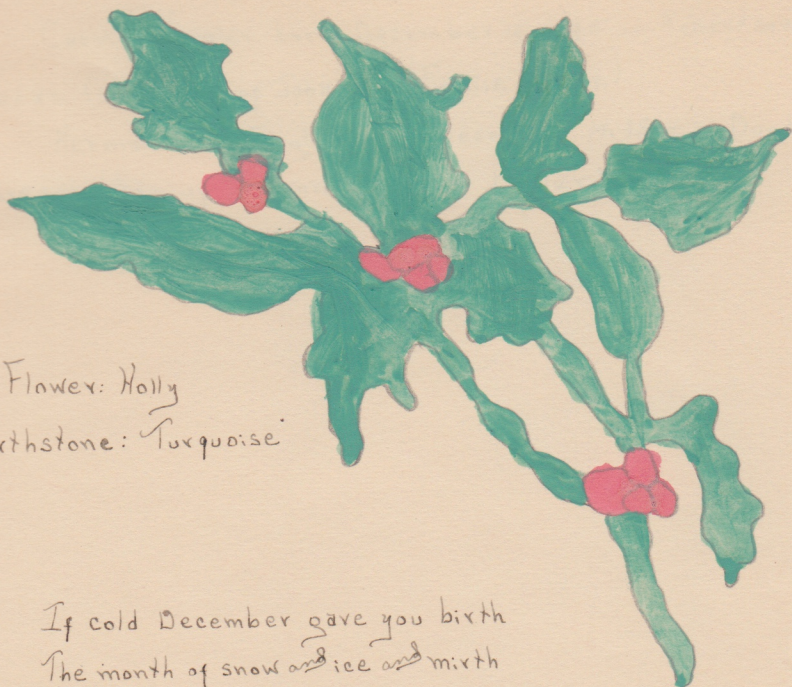 Flower: Holly
rthstone: Turquoise
If cold December gave you birth
The month of snow and ice and mirth